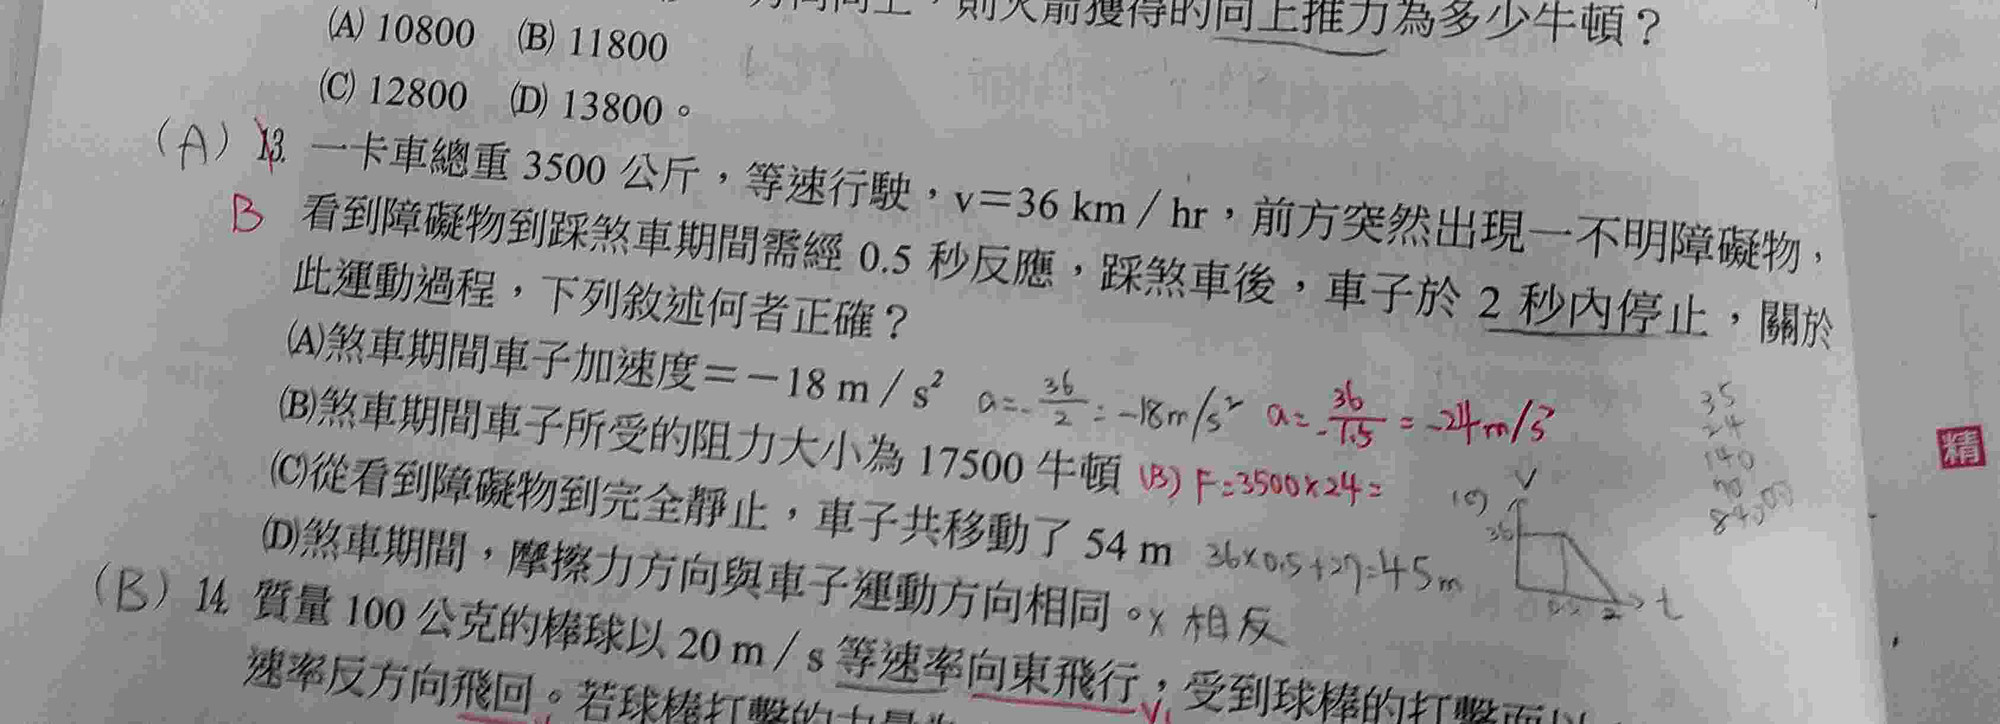 則火箭獲得的向上推力為多少牛頓？
(A) 10800 (B) 11800
(C) 12800 (D) 13800。
(A) 13. 一卡車總重 3500 公斤，等速行駛，v＝36 km / hr，前方突然出現一不明障礙物，
B 看到障礙物到踩煞車期間需經 0.5 秒反應，踩煞車後，車子於 2 秒內停止，關於
此運動過程，下列敘述何者正確？
(A)煞車期間車子加速度＝－18 m / s² a=-36/2=-18m/s² a=-36/1.5=-24m/s²
(B)煞車期間車子所受的阻力大小為 17500 牛頓 (B) F=3500×24=
(C)從看到障礙物到完全靜止，車子共移動了 54 m 36×0.5+27=45m
(D)煞車期間，摩擦力方向與車子運動方向相同。× 相反
35
24
140
70
84000
V
36
0.5 2 t
精
(B) 14. 質量 100 公克的棒球以 20 m / s 等速率向東飛行，受到球棒的打擊而以
速率反方向飛回。若球棒打擊的力量為